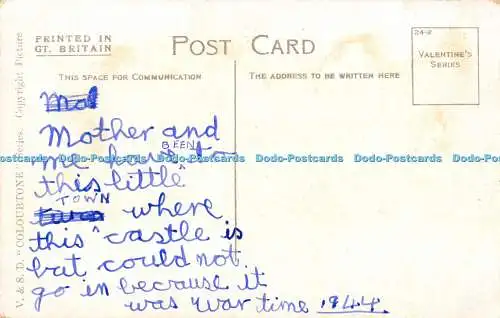 PRINTED IN
GT. BRITAIN
POST CARD
24-2
VALENTINE'S
SERIES
THIS SPACE FOR COMMUNICATION
THE ADDRESS TO BE WRITTEN HERE
V. & S. D. "COLOURTONE" Series. Copyright Picture
Mother and
me have BEEN to
this little
TOWN where
this castle is
but could not
go in because it
was war time 1944
Dodo-Postcards Dodo-Postcards Dodo-Postcards Dodo-Postcards Dodo-Postcards Dodo-Postcards